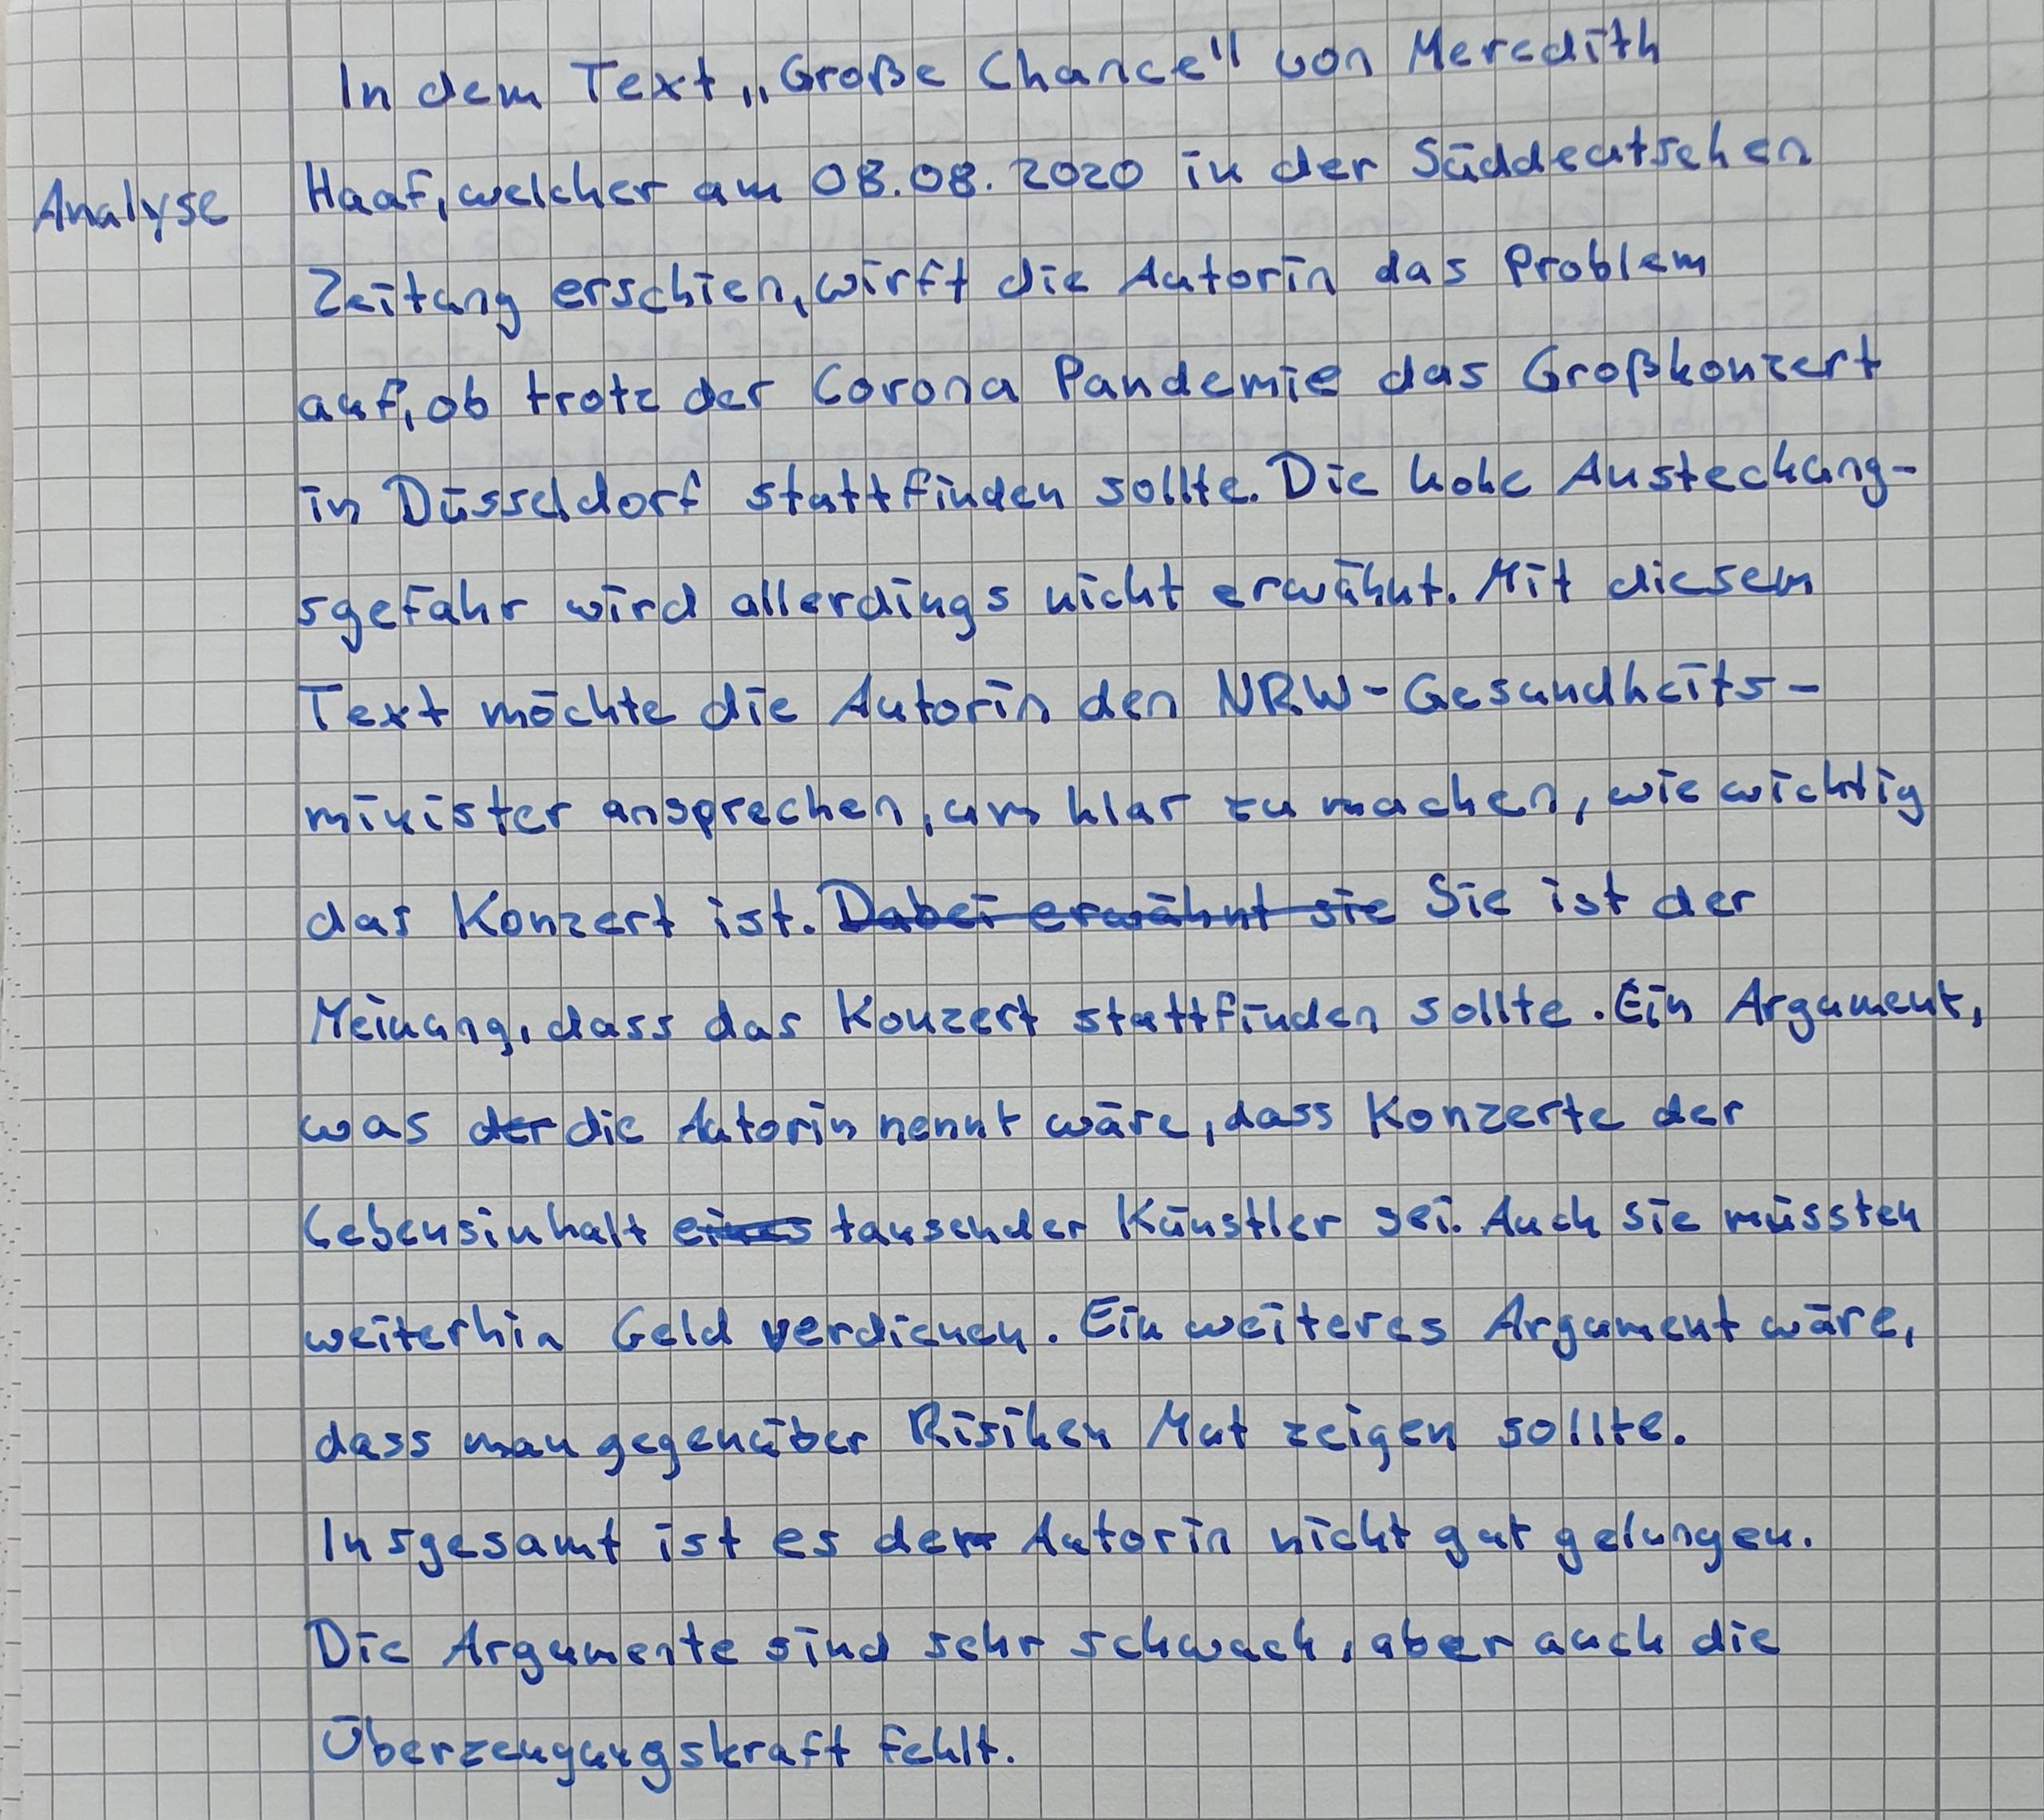 In dem Text „Große Chance" von Meredith
Analyse Haaf, welcher am 08.08.2020 in der Süddeutschen
Zeitung erschien, wirft die Autorin das Problem
auf, ob trotz der Corona Pandemie das Großkonzert
in Düsseldorf stattfinden sollte. Die hohe Ansteckung-
sgefahr wird allerdings nicht erwähnt. Mit diesem
Text möchte die Autorin den NRW-Gesundheits-
minister ansprechen, um klar zu machen, wie wichtig
das Konzert ist. Dabei erwähnt sie Sie ist der
Meinung, dass das Konzert stattfinden sollte. Ein Argument,
was der die Autorin nennt wäre, dass Konzerte der
Lebensinhalt eines tausender Künstler sei. Auch sie müssten
weiterhin Geld verdienen. Ein weiteres Argument wäre,
dass man gegenüber Risiken Mut zeigen sollte.
Insgesamt ist es der Autorin nicht gut gelungen.
Die Argumente sind sehr schwach, aber auch die
Überzeugungskraft fehlt.